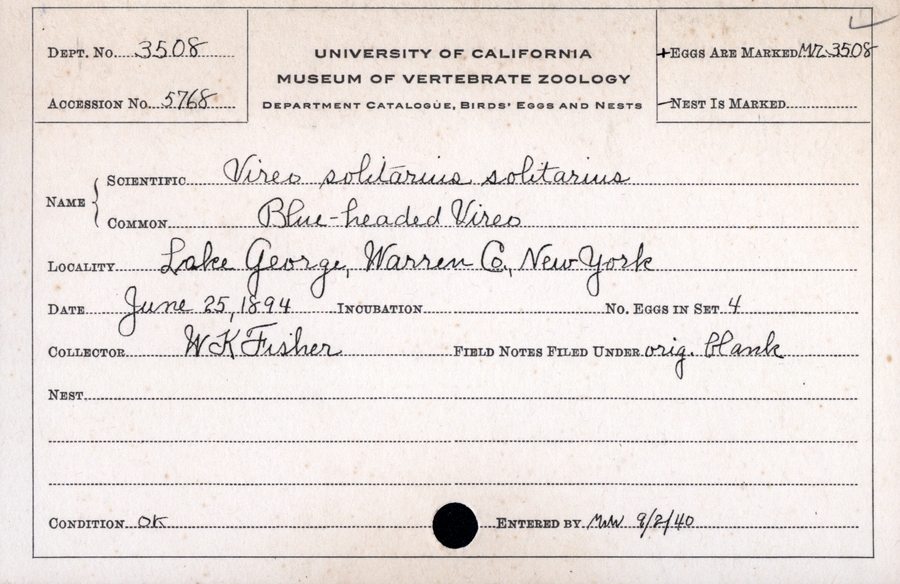 Dept. No. 3508
Accession No. 5768
UNIVERSITY OF CALIFORNIA
MUSEUM OF VERTEBRATE ZOOLOGY
Department Catalogue, Birds' Eggs and Nests
Eggs Are Marked 3508
Nest Is Marked
Name
Scientific Vireo solitarius solitarius
Common Blue-headed Vireo
Locality Lake George, Warren Co., New York
Date June 25, 1894 Incubation No. Eggs in Set 4
Collector W K Fisher Field Notes Filed Under orig. blank
Nest
Condition OK Entered by 9/2/40